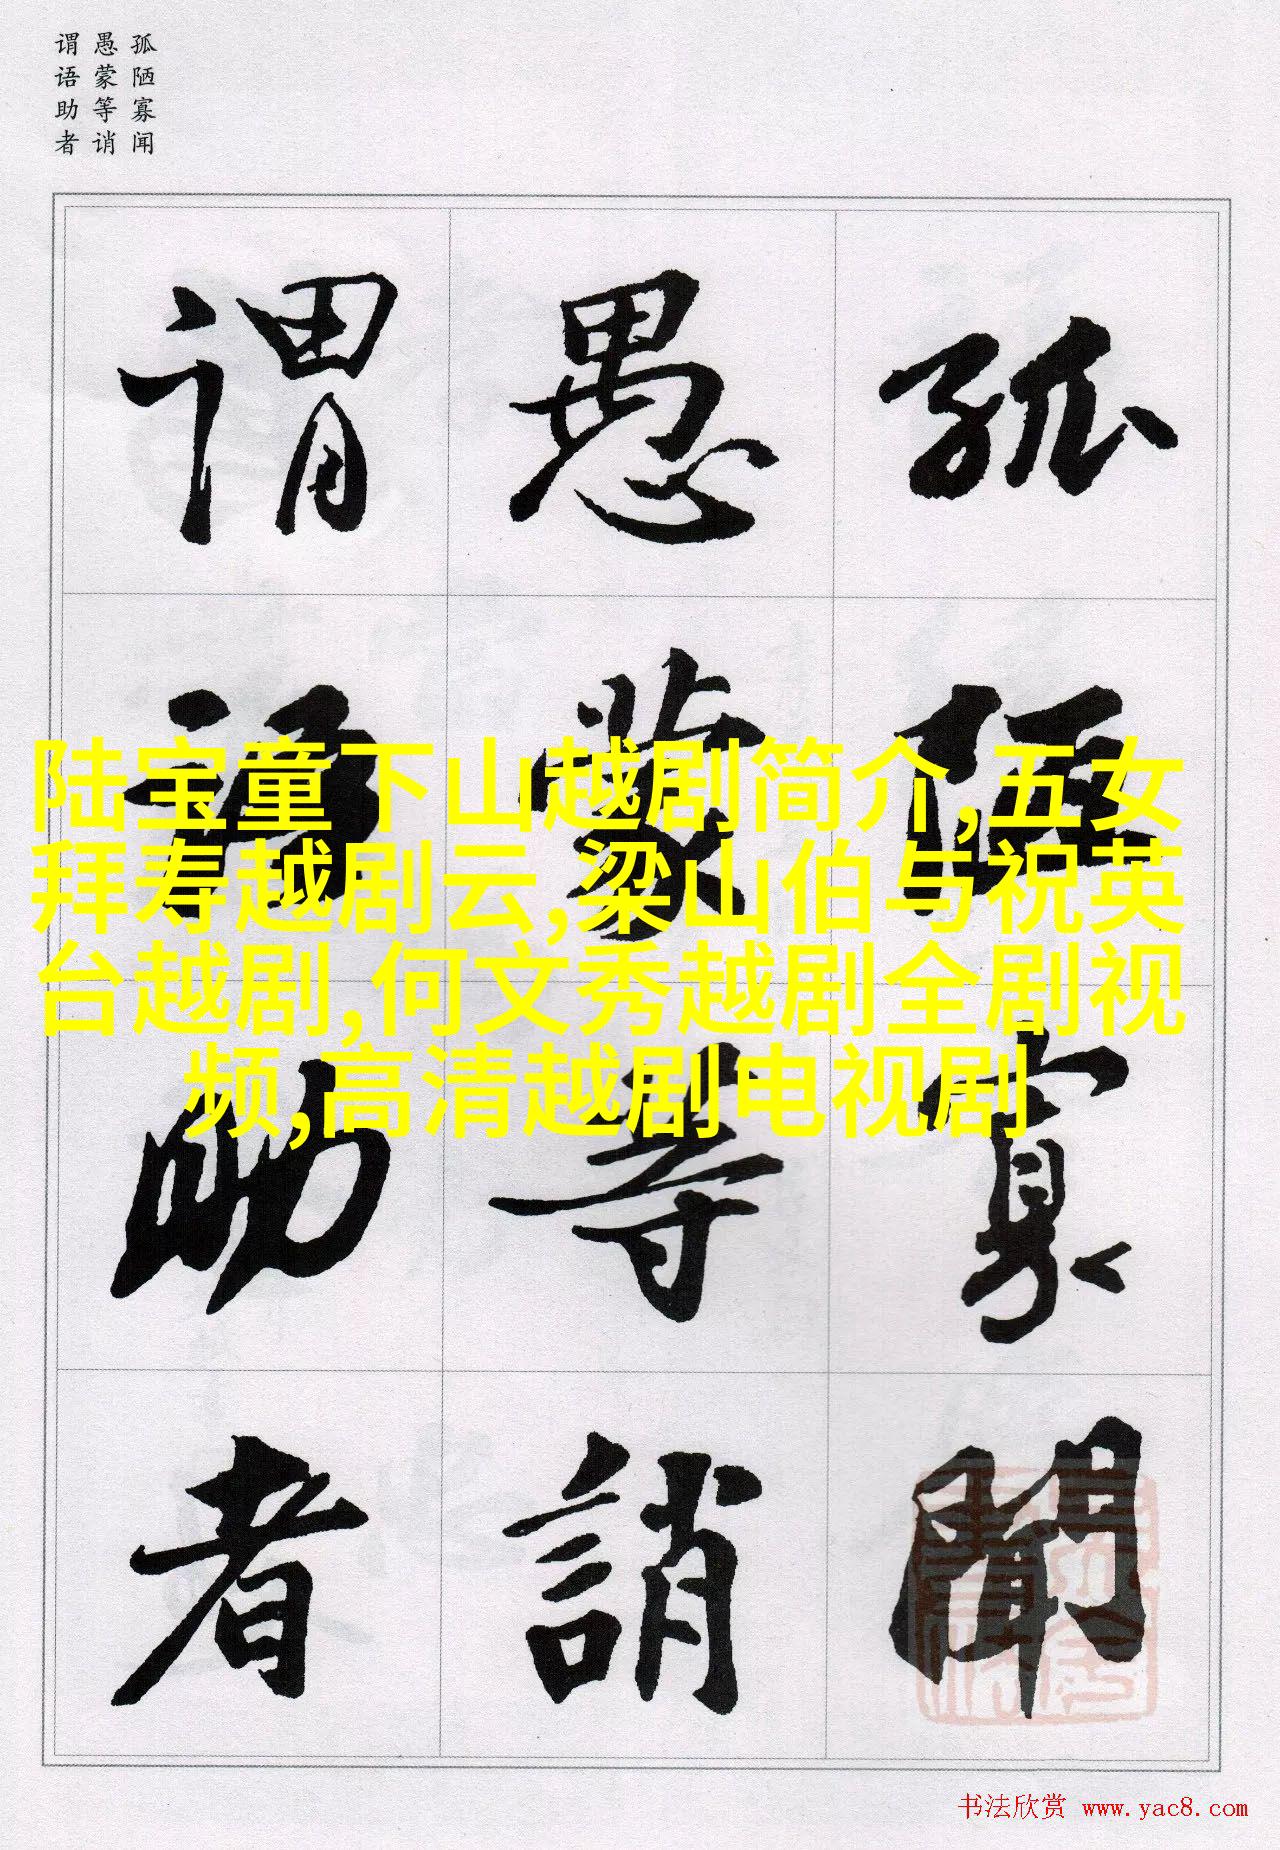 孤陋寡闻
愚蒙等诮
谓语助者
孤陋寡聞
愚蒙等誚
謂語助者
陆宝童下山越剧简介,五女
拜寿越剧云,梁山伯与祝英
台越剧,何文秀越剧全剧视
频,高清越剧电视剧
书法欣赏 www.yac8.com